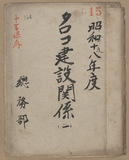 15
昭和十八年度
タロコ建設関係
(一)
總務部